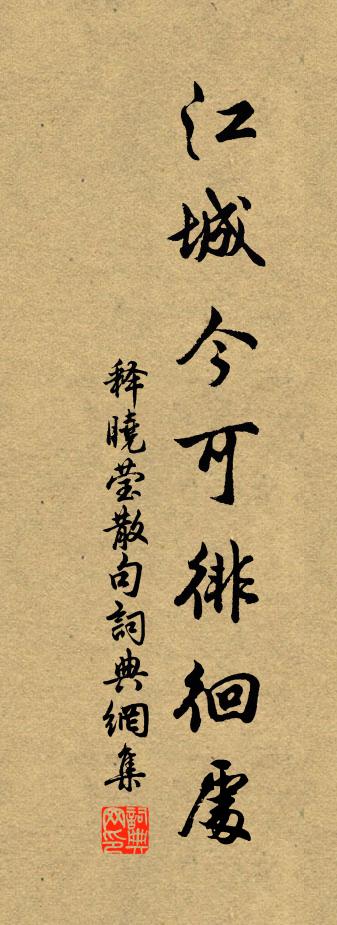 江城今可徘徊處
释曉莹散句詞典網集
詞典网印